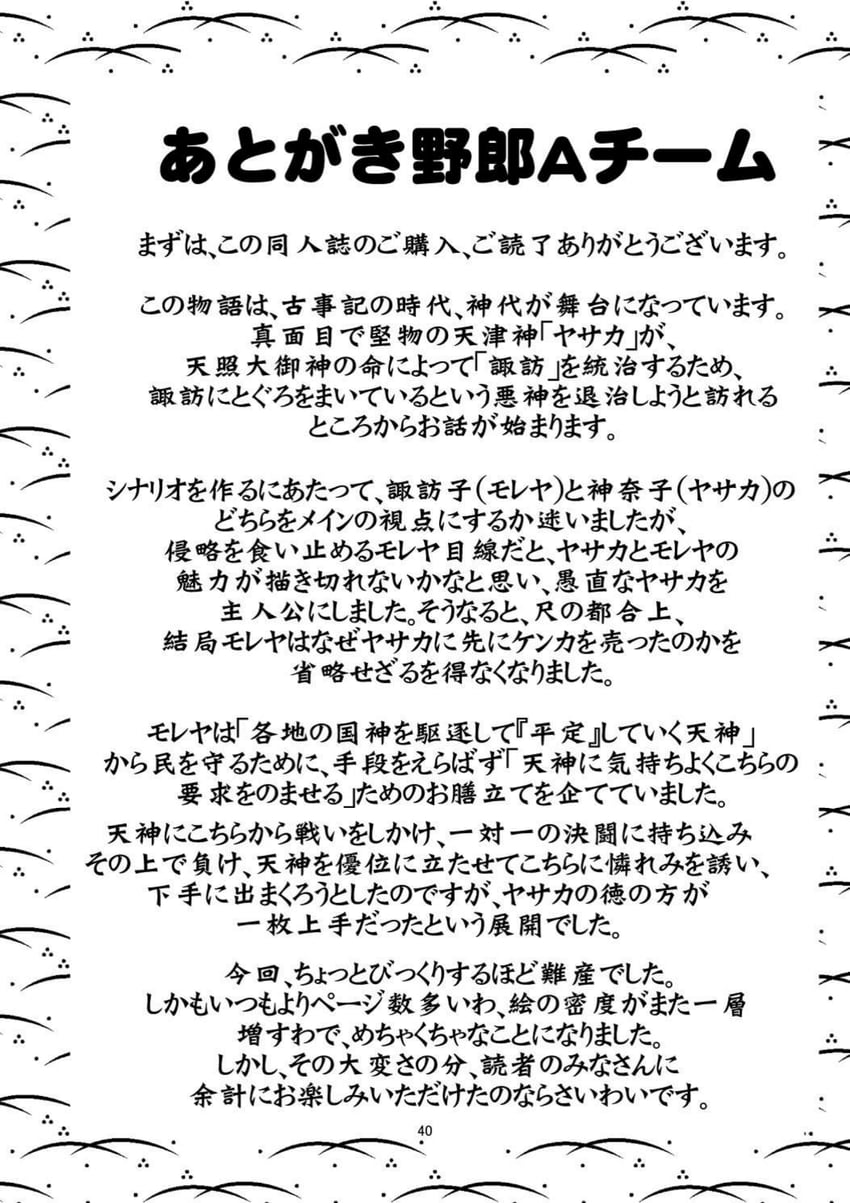 あとがき野郎Aチーム
まずは、この同人誌のご購入、ご読了ありがとうございます。
この物語は、古事記の時代、神代が舞台になっています。
真面目で堅物の天津神「ヤサカ」が、
天照大御神の命によって「諏訪」を統治するため、
諏訪にとぐろをまいているという悪神を退治しようと訪れる
ところからお話が始まります。
シナリオを作るにあたって、諏訪子(モレヤ)と神奈子(ヤサカ)の
どちらをメインの視点にするか迷いましたが、
侵略を食い止めるモレヤ目線だと、ヤサカとモレヤの
魅力が描き切れないかなと思い、愚直なヤサカを
主人公にしました。そうなると、尺の都合上、
結局モレヤはなぜヤサカに先にケンカを売ったのかを
省略せざるを得なくなりました。
モレヤは「各地の国神を駆逐して『平定』していく天神」
から民を守るために、手段をえらばず「天神に気持ちよくこちらの
要求をのませる」ためのお膳立てを企てていました。
天神にこちらから戦いをしかけ、一対一の決闘に持ち込み
その上で負け、天神を優位に立たせてこちらに憐れみを誘い、
下手に出まくろうとしたのですが、ヤサカの徳の方が
一枚上手だったという展開でした。
今回、ちょっとびっくりするほど難産でした。
しかもいつもよりページ数多いわ、絵の密度がまた一層
増すわで、めちゃくちゃなことになりました。
しかし、その大変さの分、読者のみなさんに
余計にお楽しみいただけたのならさいわいです。
40